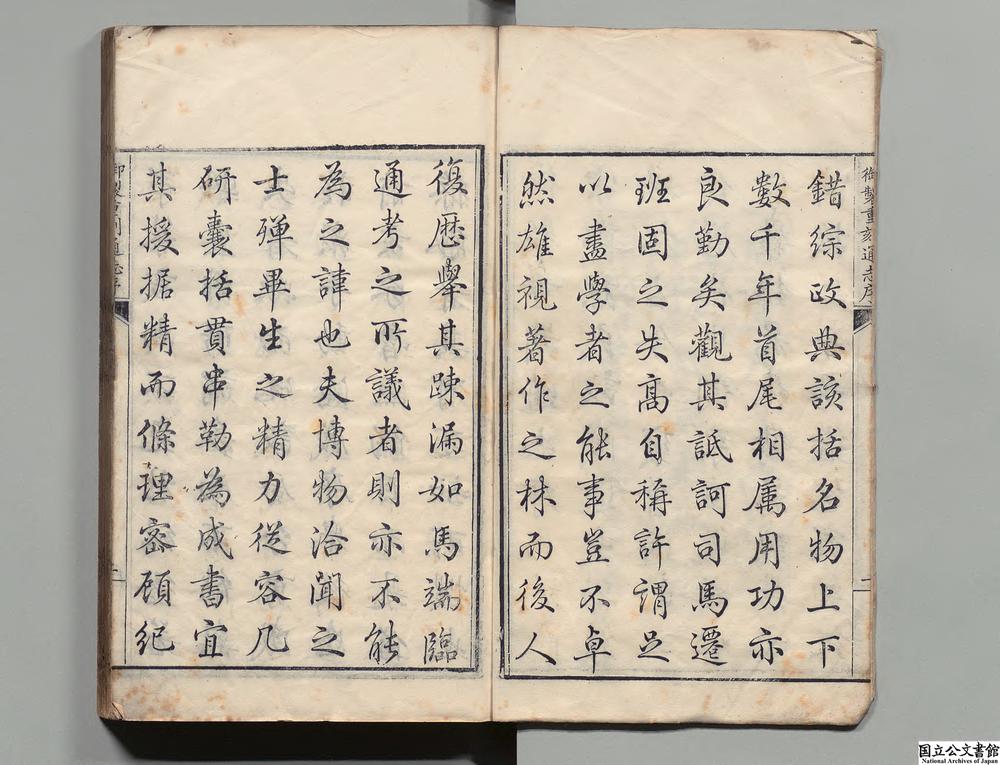 御製重刻通志序
二
錯綜政典該括名物上下
數千年首尾相属用功亦
良勤矣觀其詆訶司馬遷
班固之失高自稱許謂足
以盡學者之能事豈不卓
然雄視著作之林而後人
復歷舉其踈漏如馬端臨
通考之所議者則亦不能
為之諱也夫博物洽聞之
士殫畢生之精力從容几
研囊括貫串勒為成書宜
其援据精而條理密顧紀
国立公文書館
National Archives of Japan